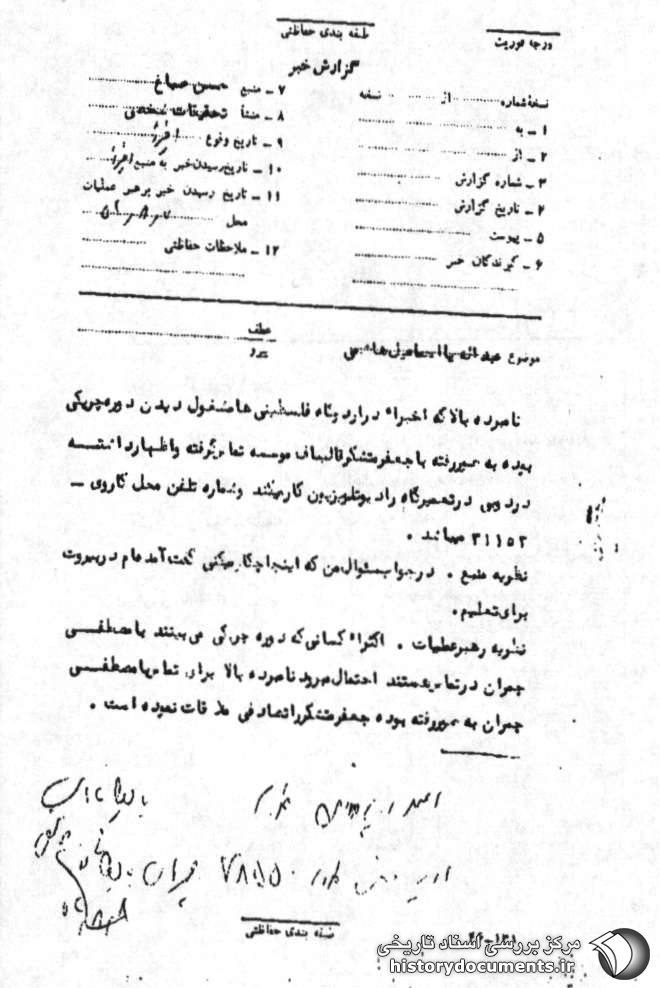 طبقه بندی حفاظتی
درجه فوریت
گزارش خبر
نسخهٔ شماره ........ از ........ نسخه
۱ ـ به
۲ ـ از
۳ ـ شماره گزارش
۴ ـ تاریخ گزارش
۵ ـ پیوست
۶ ـ گیرندگان خبر
۷ ـ منبع حسن صباغ
۸ ـ منشأ تحقیقات شخصی
۹ ـ تاریخ وقوع اخیراً
۱۰ ـ تاریخ رسیدن خبر به منبع اخیراً
۱۱ ـ تاریخ رسیدن خبر برهبر عملیات
محل
۱۲ ـ ملاحظات حفاظتی
موضوع
عطف
پیرو
نامبرده بالا که اخیراً در اردوگاه فلسطینی ها مشغول دیدن دوره چریکی
بوده به صور رفته با جعفر متشکر قالیباف موسسه تماس گرفته و اظهار داشته
در دوبی در تعمیرگاه رادیو تلویزیون کار میکند و شماره تلفن محل کار وی ـ
۳۱۱۵۲ میباشد .
نظریه منبع . در جواب سئوال من که اینجا چکار میکنی گفت آمده ام در بیروت
برای تعلیم .
نظریه رهبر عملیات . اکثراً کسانی که دوره چریکی می بینند با مصطفی
چمران در تماس هستند احتمال میرود نامبرده بالا برای تماس با مصطفی
چمران به صور رفته بوده جعفر متشکر را تصادفی ملاقات نموده است .
طبقه بندی حفاظتی
مرکز بررسی اسناد تاریخی
historydocuments.ir